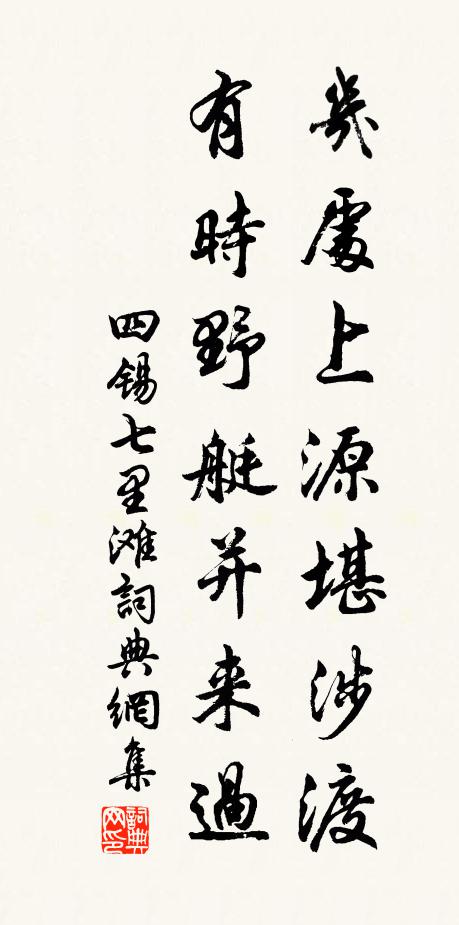 幾處上源堪涉渡
有時野艇并来過
四锡七里滩詞典網集
詞典网印